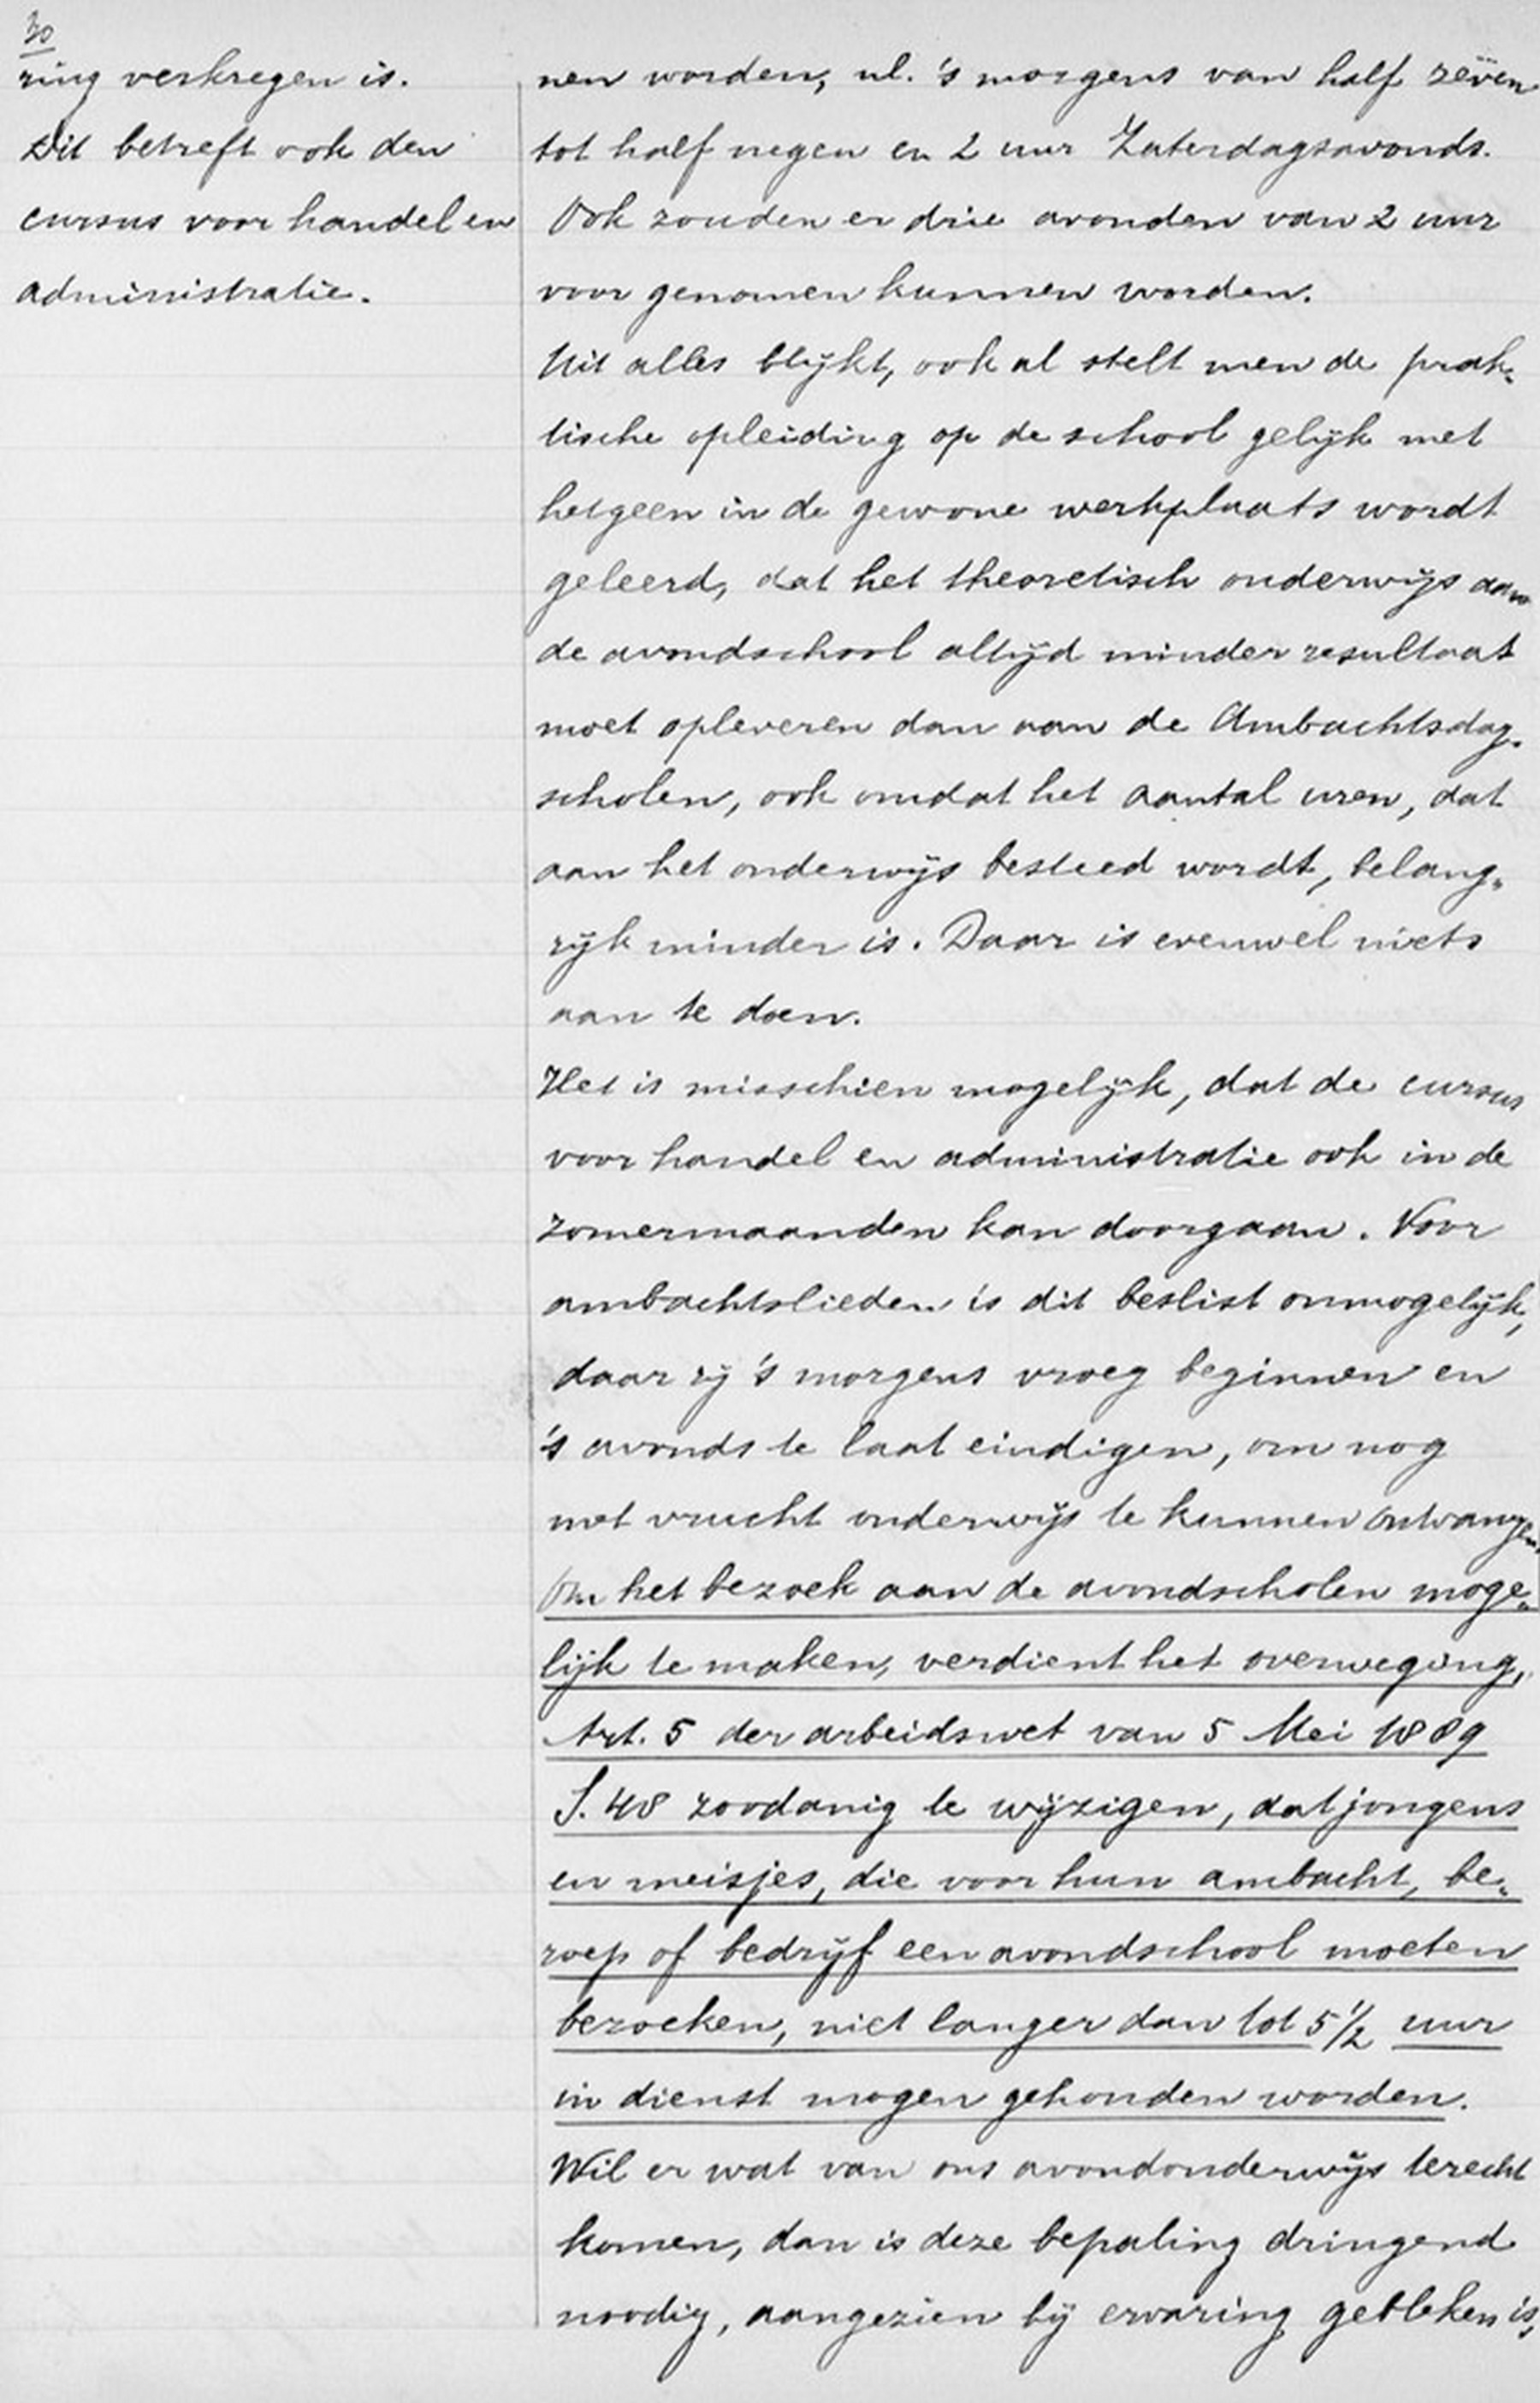 30
ring verkregen is.
Dit betreft ook den
cursus voor handel en
administratie.
nen worden, nl. 's morgens van half zeven
tot half negen en 2 uur Zaterdagsavonds.
Ook zouden er drie avonden van 2 uur
voor genomen kunnen worden.
Uit alles blijkt, ook al stelt men de prak„
tische opleiding op de school gelijk met
hetgeen in de gewone werkplaats wordt
geleerd, dat het theoretisch onderwijs aan
de avondschool altijd minder resultaat
moet opleveren dan aan de Ambachtsdag„
scholen, ook omdat het aantal uren, dat
aan het onderwijs besteed wordt, belang„
rijk minder is. Daar is evenwel niets
aan te doen.
Het is misschien mogelijk, dat de cursus
voor handel en administratie ook in de
zomermaanden kan doorgaan. Voor
ambachtslieden is dit beslist onmogelijk,
daar zij 's morgens vroeg beginnen en
's avonds te laat eindigen, om nog
met vrucht onderwijs te kunnen ontvangen.
Om het bezoek aan de avondscholen moge„
lijk te maken, verdient het overweging,
Art. 5 der arbeidswet van 5 Mei 1889
S. 48 zoodanig te wijzigen, dat jongens
en meisjes, die voor hun ambacht, be„
roep of bedrijf een avondschool moeten
bezoeken, niet langer dan tot 5 1/2 uur
in dienst mogen gehouden worden.
Wil er wat van ons avondonderwijs terecht
komen, dan is deze bepaling dringend
noodig, aangezien bij ervaring gebleken is,